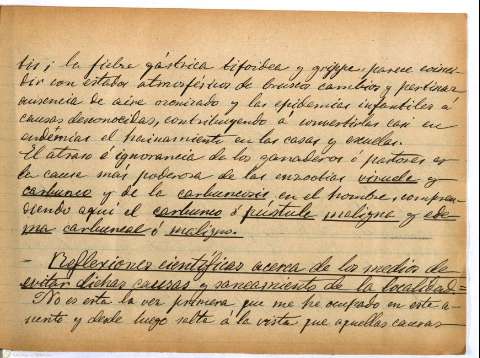 tis; la fiebre gástrica tifoidea y grippe parece coinci-
dir con estados atmosféricos de bruscos cambios y pertinaz
ausencia de aire ozonizado y las epidemias infantiles á
causas desconocidas, contribuyendo á convertirlas casi en
endemias el hacinamiento en las casas y escuelas.
El atraso é ignorancia de los ganaderos ó pastores es
la causa mas poderosa de las enzootias viruela y
carbunco y de la carbuncosis en el hombre, compren-
diendo aquí el carbunco ó pústula maligna y ede-
ma carbuncal ó maligno.
- Reflexiones científicas acerca de los medios de
evitar dichas causas y saneamiento de la localidad=
No es esta la vez primera que me he ocupado en este a-
sunto y desde luego salta á la vista que aquellas causas